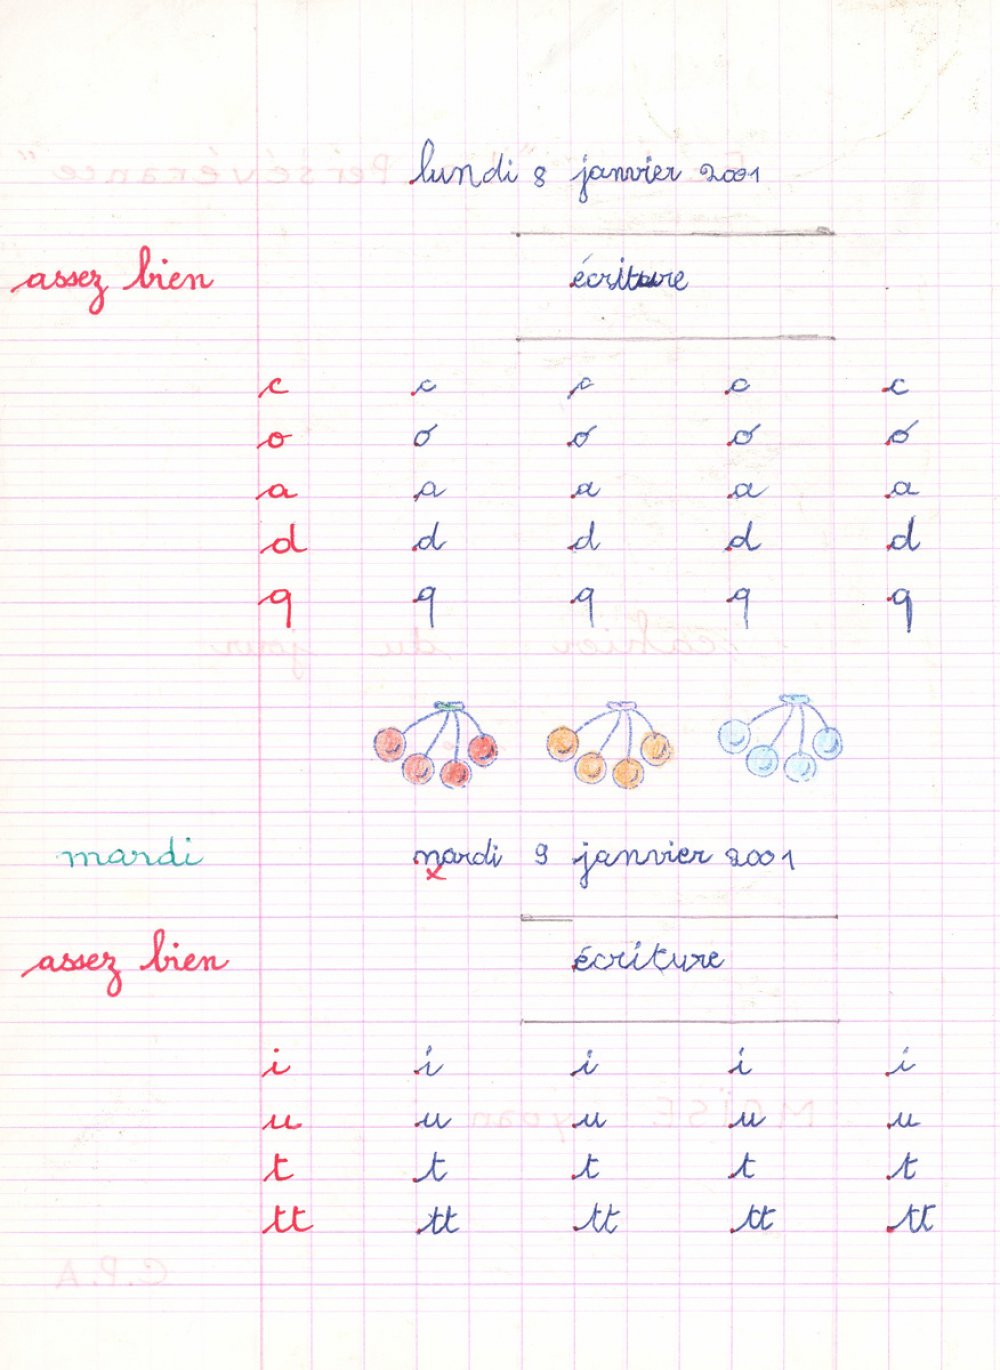 lundi 8 janvier 2001
assez bien écriture
c c c c c
o o o o o
a a a a a
d d d d d
q q q q q
mardi mardi 9 janvier 2001
assez bien écriture
i i i i i
u u u u u
t t t t t
tt tt tt tt tt